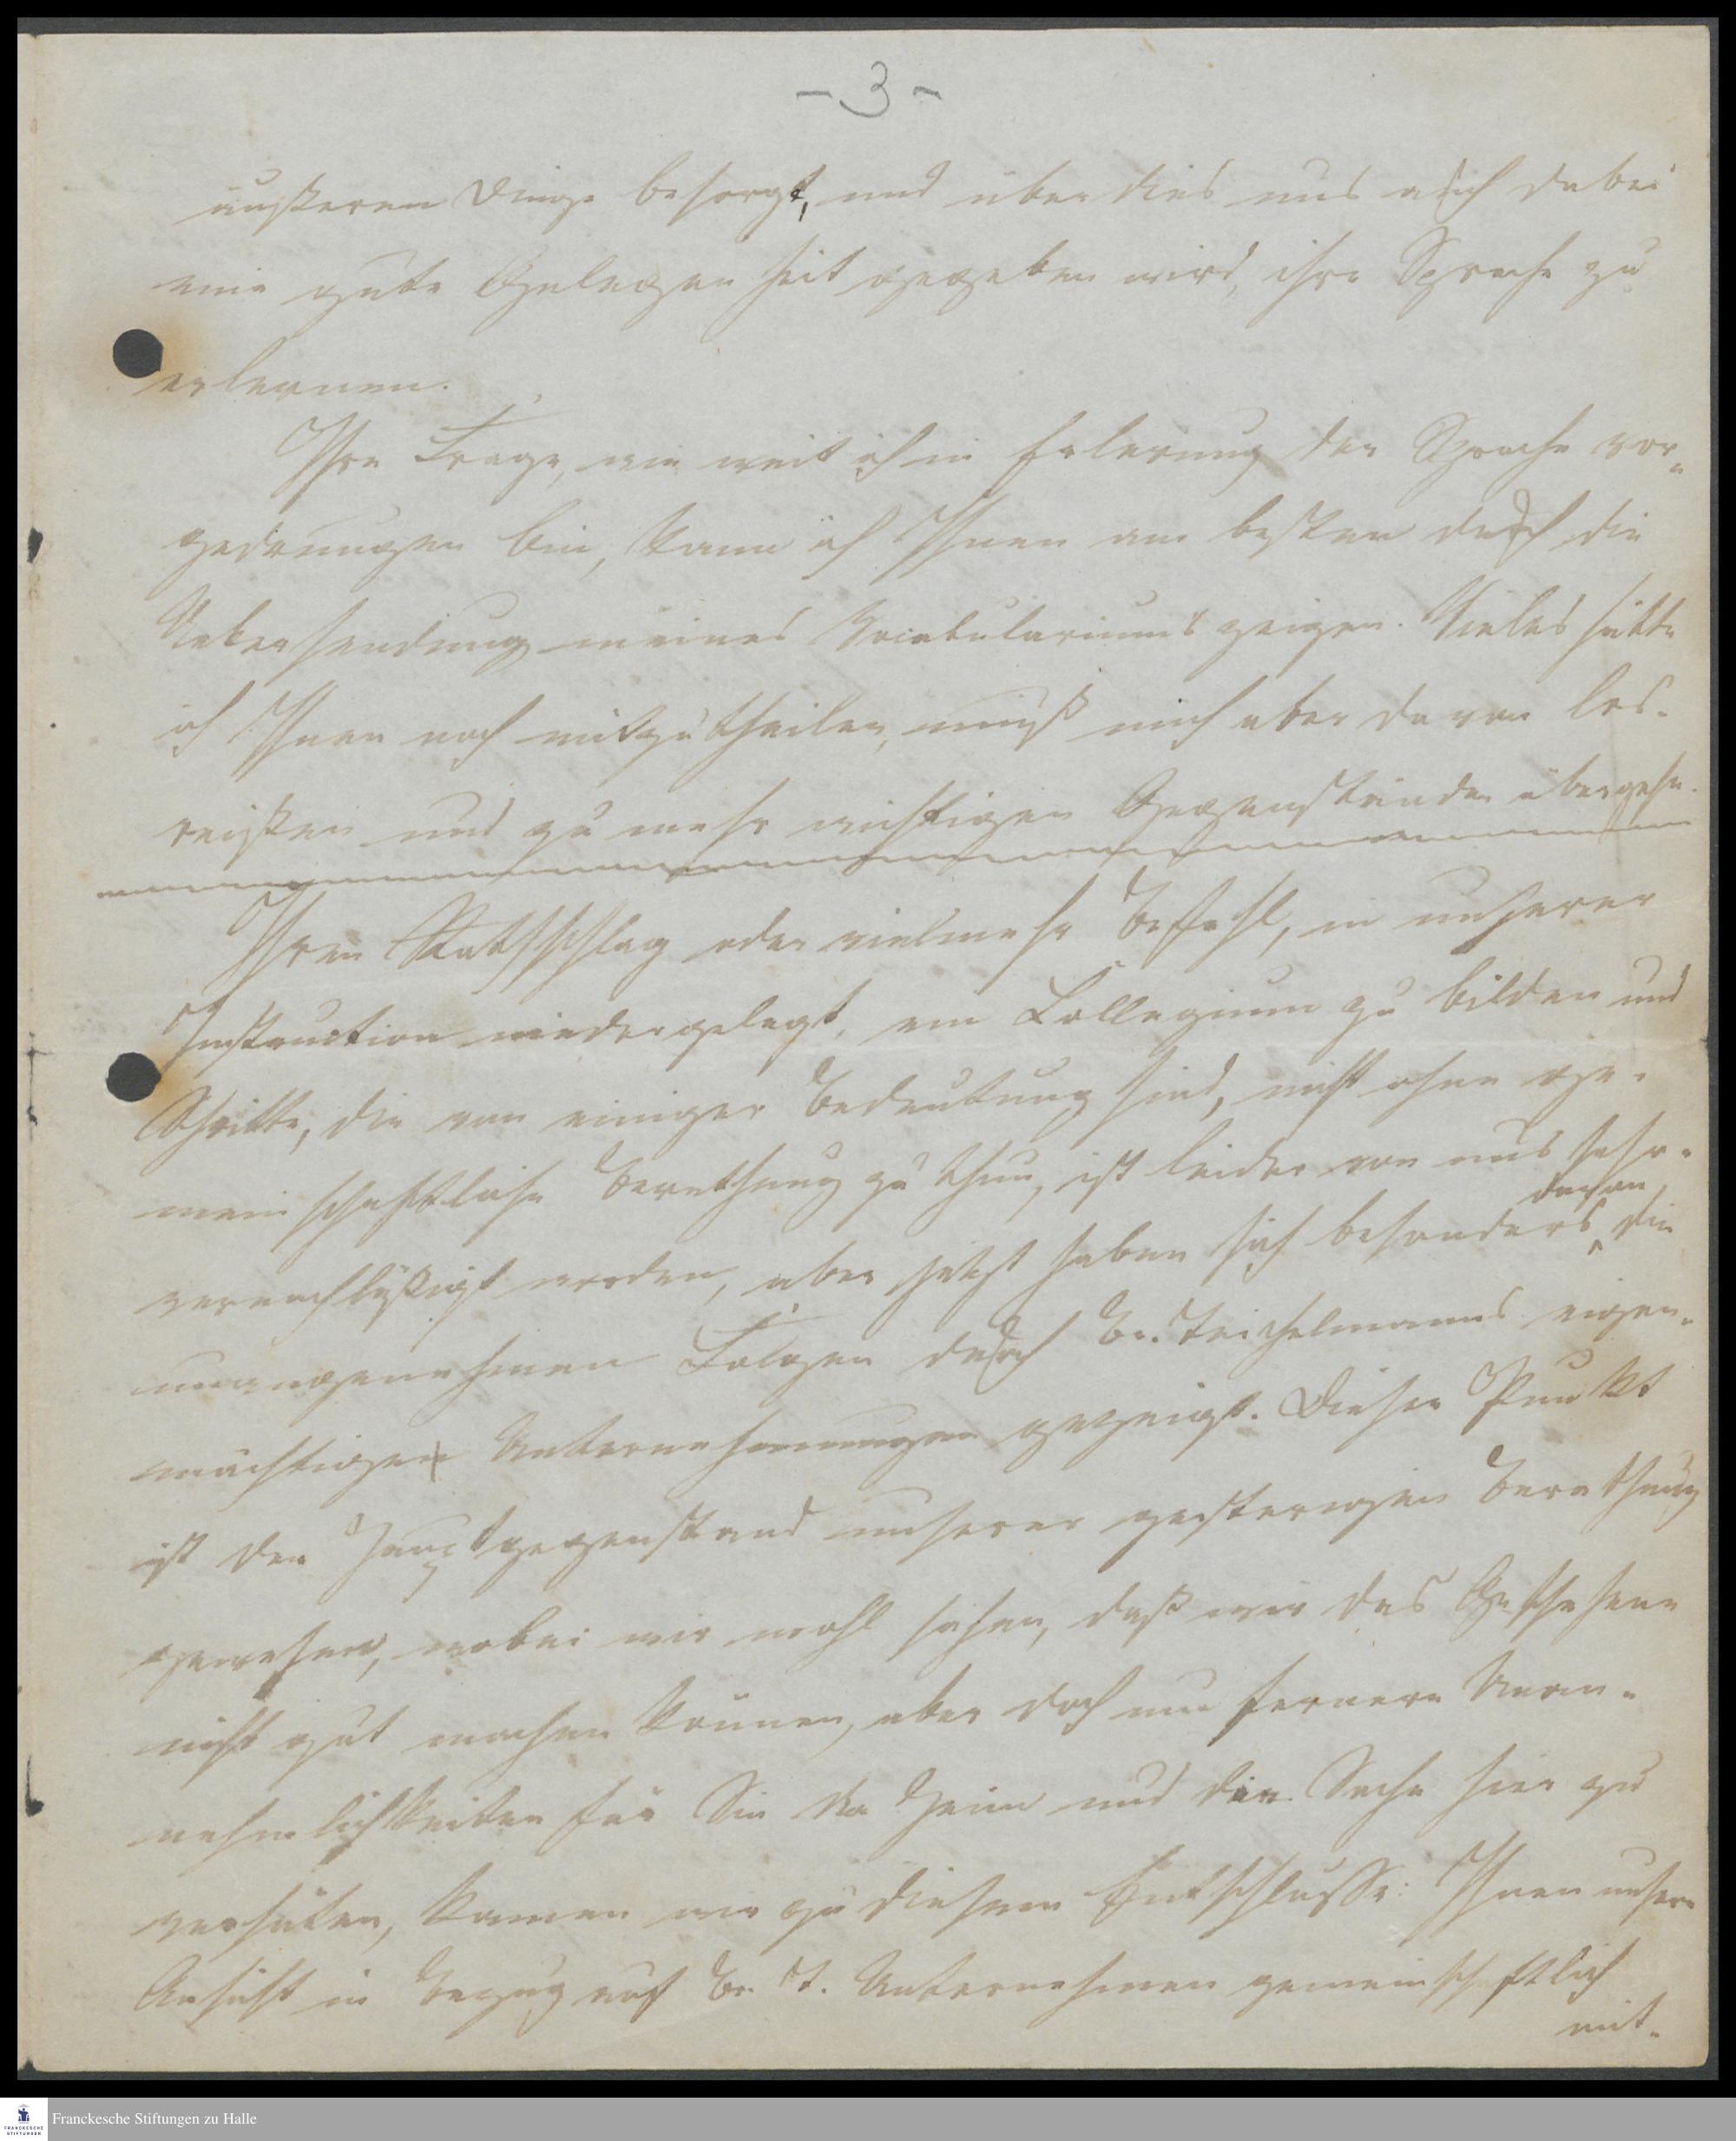 - 3 -
äußeren Dinge besorgt, und über dies uns auch dabei
eine gute Gelegenheit gegeben wird, ihre Sprache zu
erlernen.
Ihre Frage, wie weit ich in Erlernung der Sprache vor-
gedrungen bin, kann ich Ihnen am besten durch die
Uebersendung meines Vocabulariums zeigen. Vieles hätte
ich Ihnen noch mitzutheilen, muß mich aber davon los-
reißen und zu mehr wichtigen Gegenständen übergehn.
Ihren Rathschlag oder vielmehr Befehl, in unserer
Instruction niedergelegt, ein Collegium zu bilden und
Schritte, die von einiger Bedeutung sind, nicht ohne ge-
meinschaftliche Berathung zu thun, ist leider von uns sehr
vernachläßigt worden, aber jetzt haben sich besonders davon die
unangenehmen Folgen durch Br. Teichelmanns eigen-
mächtigen Unternehmungen gezeigt. Dieser Punkt
ist der Hauptgegenstand unserer gesterigen Berathung
gewesen, wobei wir wohl sahen, daß wir das Geschehene
nicht gut machen können, aber doch um fernere Unan-
nehmlichkeiten für Sie da heim und die Sache hier zu
verhüten, kamen wir zu diesem Entschlusse: Ihnen unsere
Ansicht in Bezug auf Br. T. Unternehmen gemeinschaftlich
mit-
Franckesche Stiftungen zu Halle
FRANCKESCHE
STIFTUNGEN